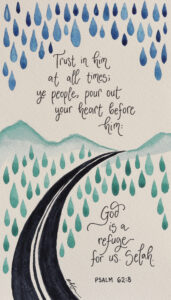 Trust in him
at all times;
ye people, pour out
your heart before
him:
God
is a
refuge
for us. Selah
PSALM 62:8